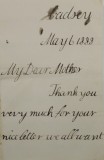 Hadsey
May 6 1888
My Dear Mother
Thank you
very much for your
nice letter we all want